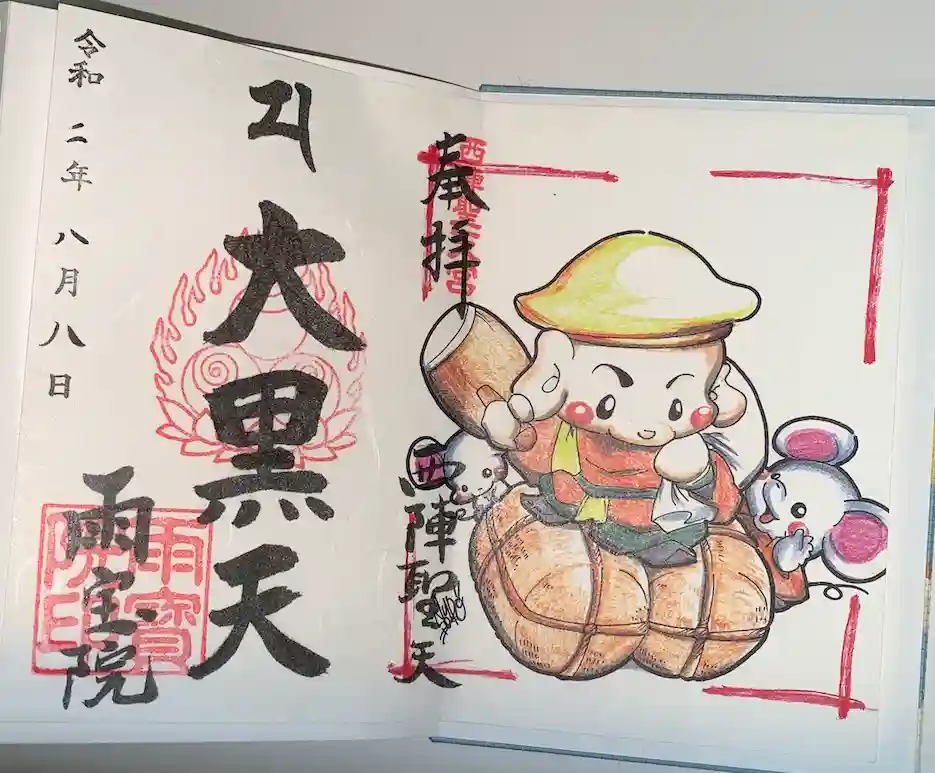 奉拝
西陣聖天宮
西陣聖天
大黒天
雨宝院
雨寳院印
令和二年八月八日